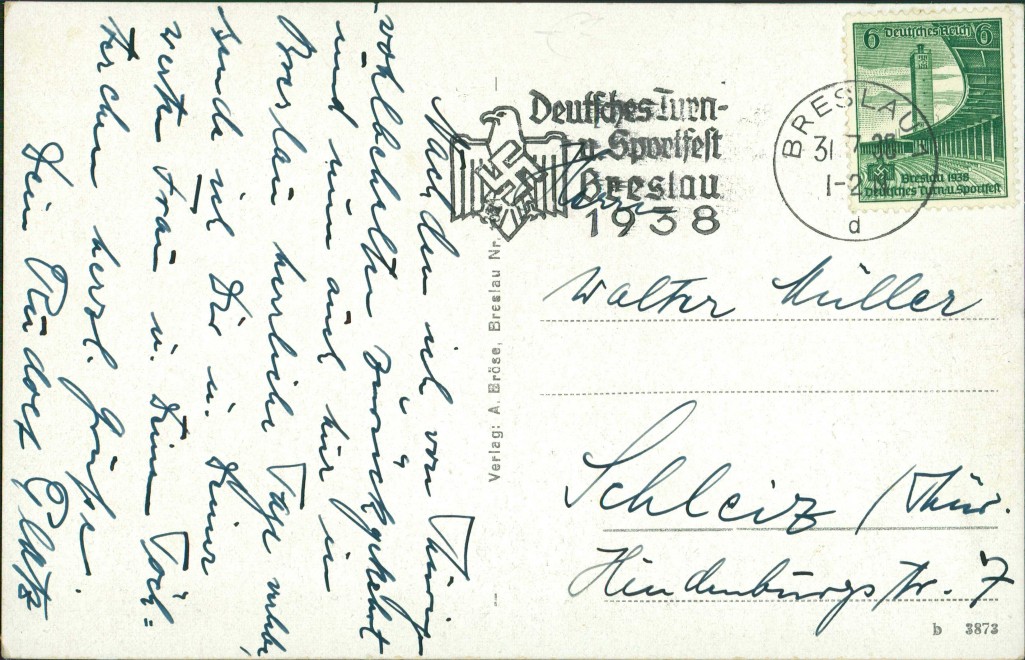 Nachdem ich von Thüringen
wohlbehalten zurückgekehrt
und nun auch hier in
Breslau herrliche Tage verlebe,
sende ich Dir u. Deiner
werten Frau u. Deinem Töch=
terchen herzl. Grüße.
Dein Rudolf
Deutsches Turn-
u. Sportfest
Breslau
1938
BRESLAU
31.7.38
1-2
d
6 Deutsches Reich 6
Breslau 1938
Deutsches Turn u. Sportfest
Herrn
Walter Müller
Schleiz (Thür.
Hindenburgstr. 7
Verlag: A. Bröse, Breslau Nr.
b 3873